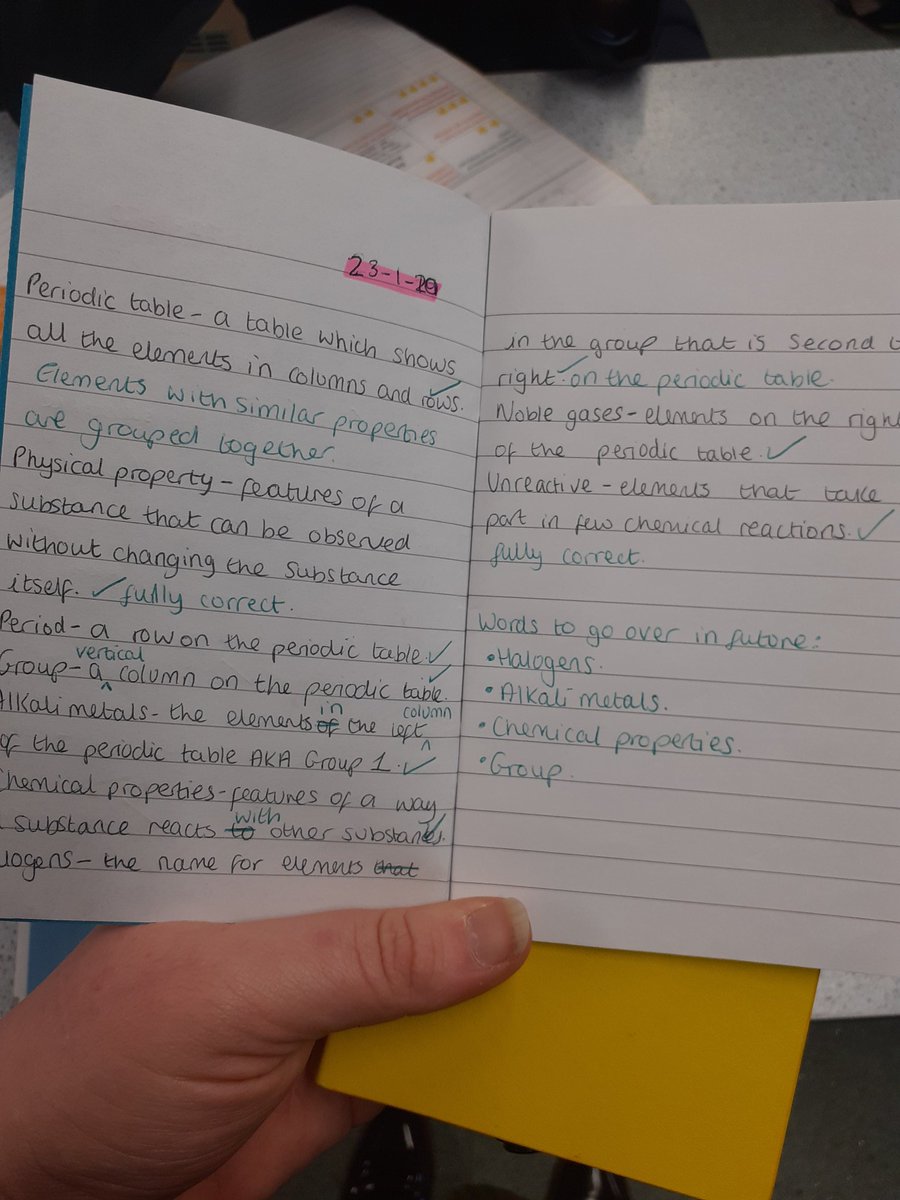 23-1-20
Periodic table - a table which shows
all the elements in columns and rows.
Elements with similar properties
are grouped together.
Physical property - features of a
substance that can be observed
without changing the substance
itself. ✓ fully correct.
Period - a row on the periodic table ✓
vertical
Group - a column on the periodic table.
in column
Alkali metals - the elements of the left
of the periodic table AKA Group 1. ✓
Chemical properties - features of a way
with
substance reacts to other substances.
logens - the name for elements that
in the group that is second t
right ✓ on the periodic table.
Noble gases - elements on the right
of the periodic table. ✓
Unreactive - elements that take
part in few chemical reactions. ✓
fully correct.
Words to go over in future:
• Halogens.
• Alkali metals.
• Chemical properties.
• Group.